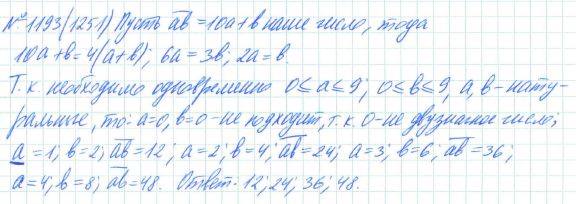 № 1193(1251) Пусть ab = 10a+b наше число, тогда
10a+b=4(a+b); 6a=3b; 2a=b.
Т.к. необходимо одновременно 0≤a≤9; 0≤b≤9, a,b-нату-
ральные, то: a=0, b=0-не подходит, т.к. 0-не двузначное число;
a=1; b=2; ab=12; a=2; b=4; ab=24; a=3; b=6; ab=36;
a=4; b=8; ab=48. Ответ: 12; 24; 36; 48.